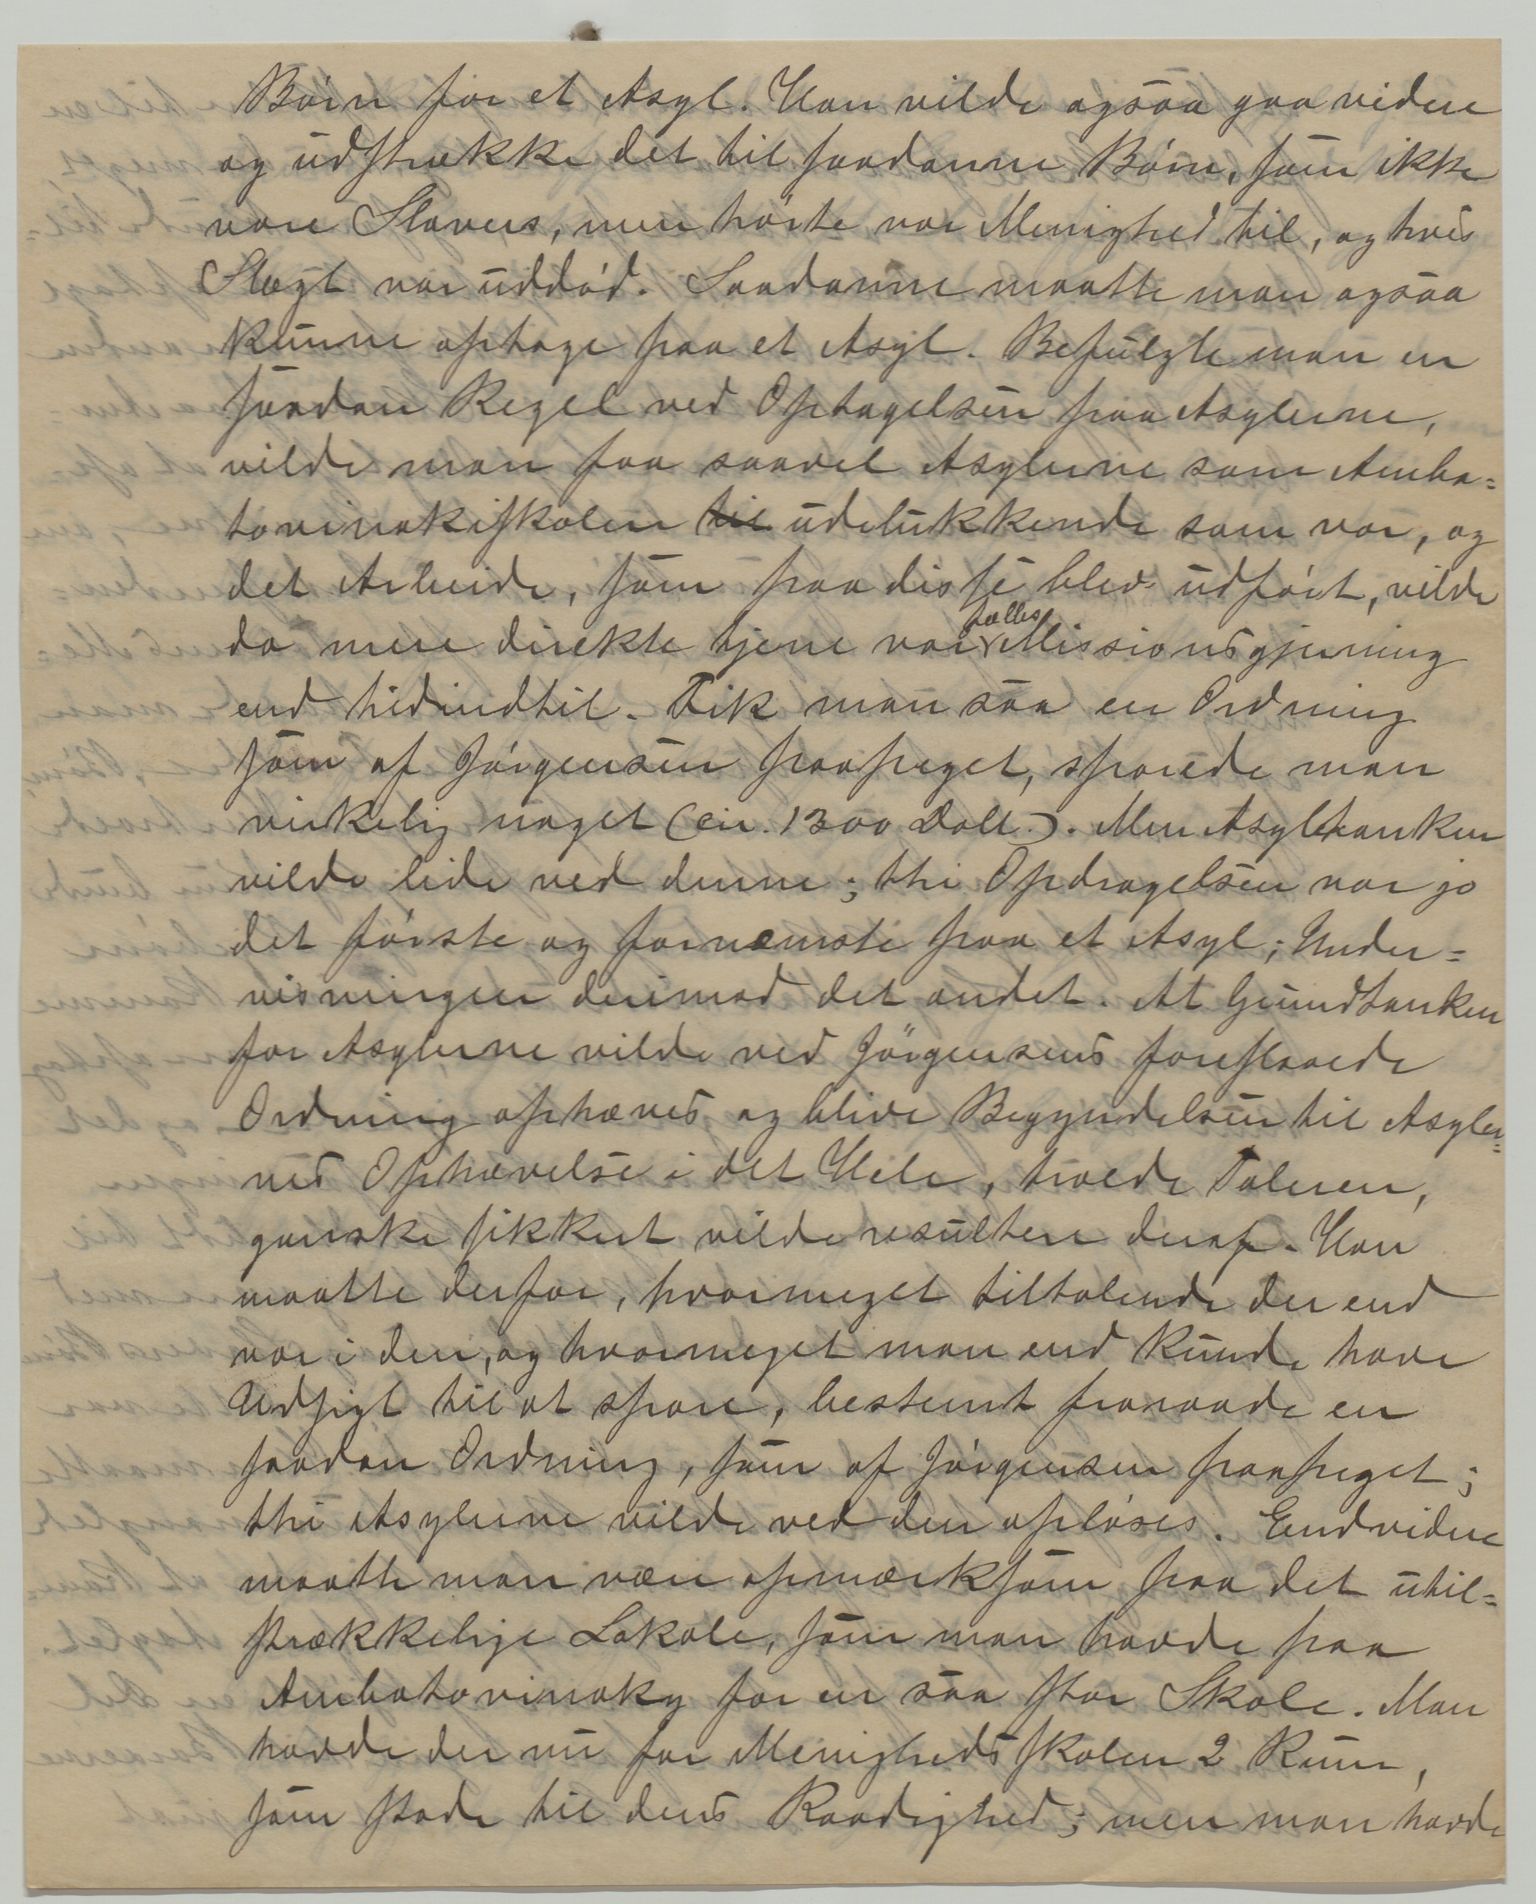 Børn for et Asyl. Han vilde ogsaa gaa videre
og udstrække det til saadanne Børn, som ikke
vare Slavers, men hørte vor Menighed til, og hvis
Slægt var uddød. Saadanne maatte man ogsaa
kunne optage paa et Asyl. Befulgte man en
saadan Regel ved Optagelsen paa Asylerne,
vilde man faa saavel Asylerne som Amba=
tovinakiskolen til udelukkende som vor, og
det Arbeide, som paa disse blev udført, vilde
da mere direkte tjene vor fælles Missionsgjerning
end hidindtil. Fik man saa en Ordning
som af Jørgensen paapeget, sparede man
virkelig noget (cir. 1300 Doll.). Men Asyltanken
vilde lide ved denne; thi Opdragelsen var jo
det første og fornemste paa et Asyl; Under=
visningen derimod det andet. At Grundtanken
for Asylerne vilde ved Jörgensens foreslaaede
Ordning ophæves og blive Begyndelsen til Asyler=
nes Ophævelse i det Hele, troede Taleren,
ganske sikkert vilde resultere deraf. Han
maatte derfor, hvormeget tiltalende der end
var i den, og hvormeget man end kunde have
Udsigt til at spare, bestemt fraraade en
saadan Ordning, som af Jørgensen paapeget;
thi Asylerne vilde ved den opløses. Endvidere
maatte man være opmærksom paa det util=
strækkelige Lokale, som man havde paa
Ambatovinaky for en saa stor Skole. Man
havde der nu for Menighedsskolen 2 Rum,
som stode til dens Raadighed; men man havde